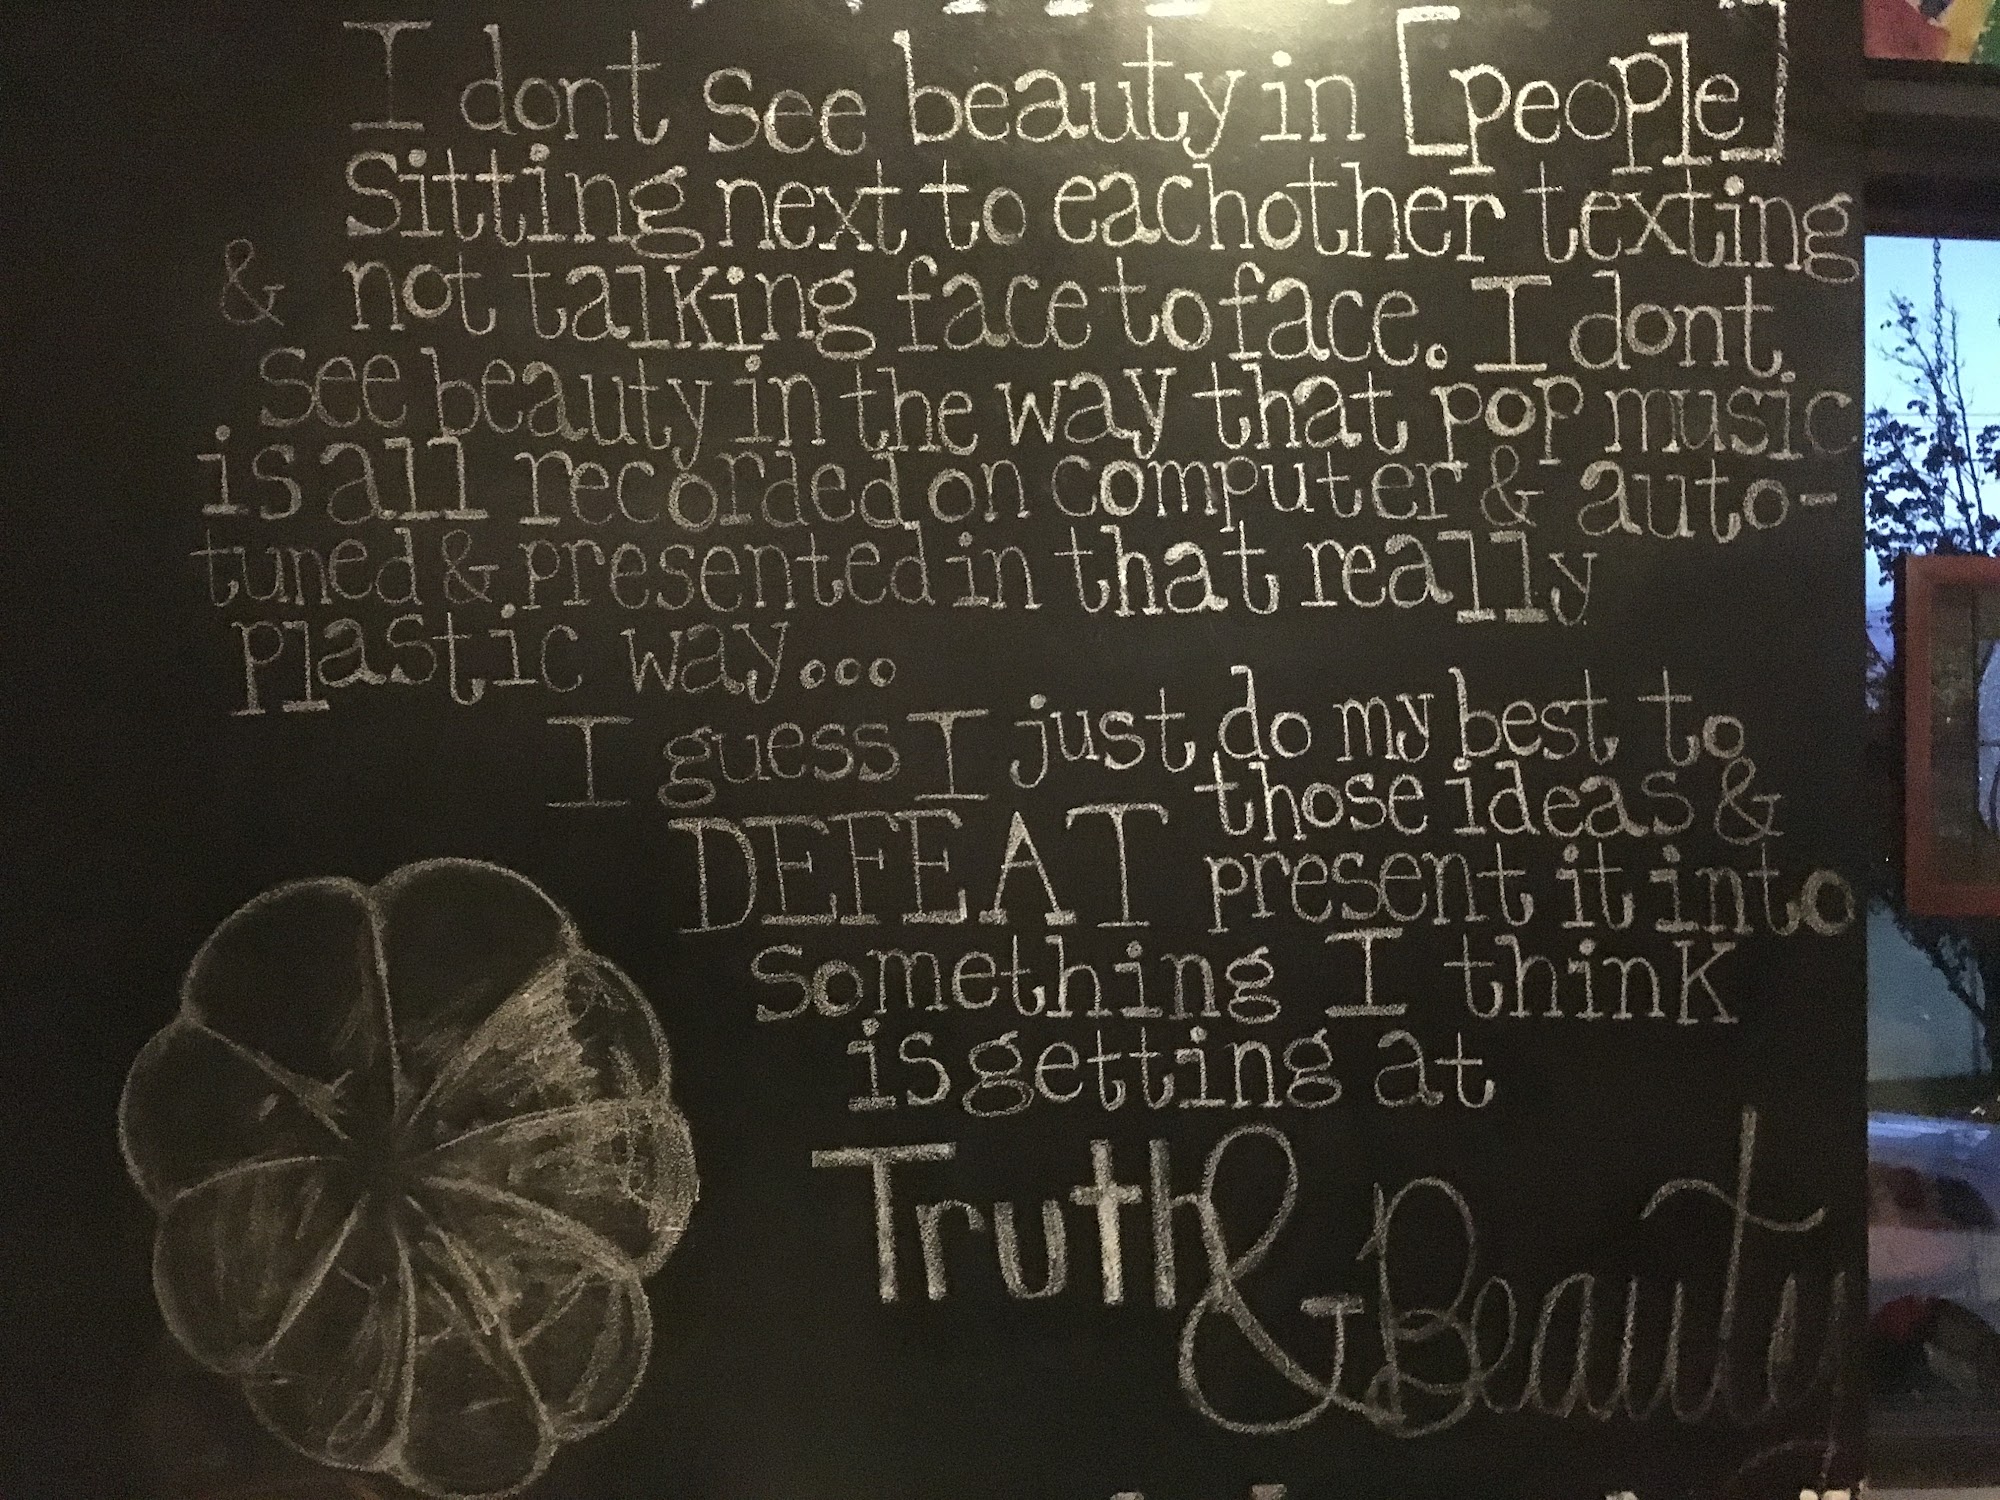 I dont see beauty in [people]
sitting next to eachother texting
& not talking face to face. I dont
see beauty in the way that pop music
is all recorded on computer & auto-
tuned & presented in that really
plastic way...
I guess I just do my best to
DEFEAT those ideas &
present it into
something I think
is getting at
Truth & Beauty